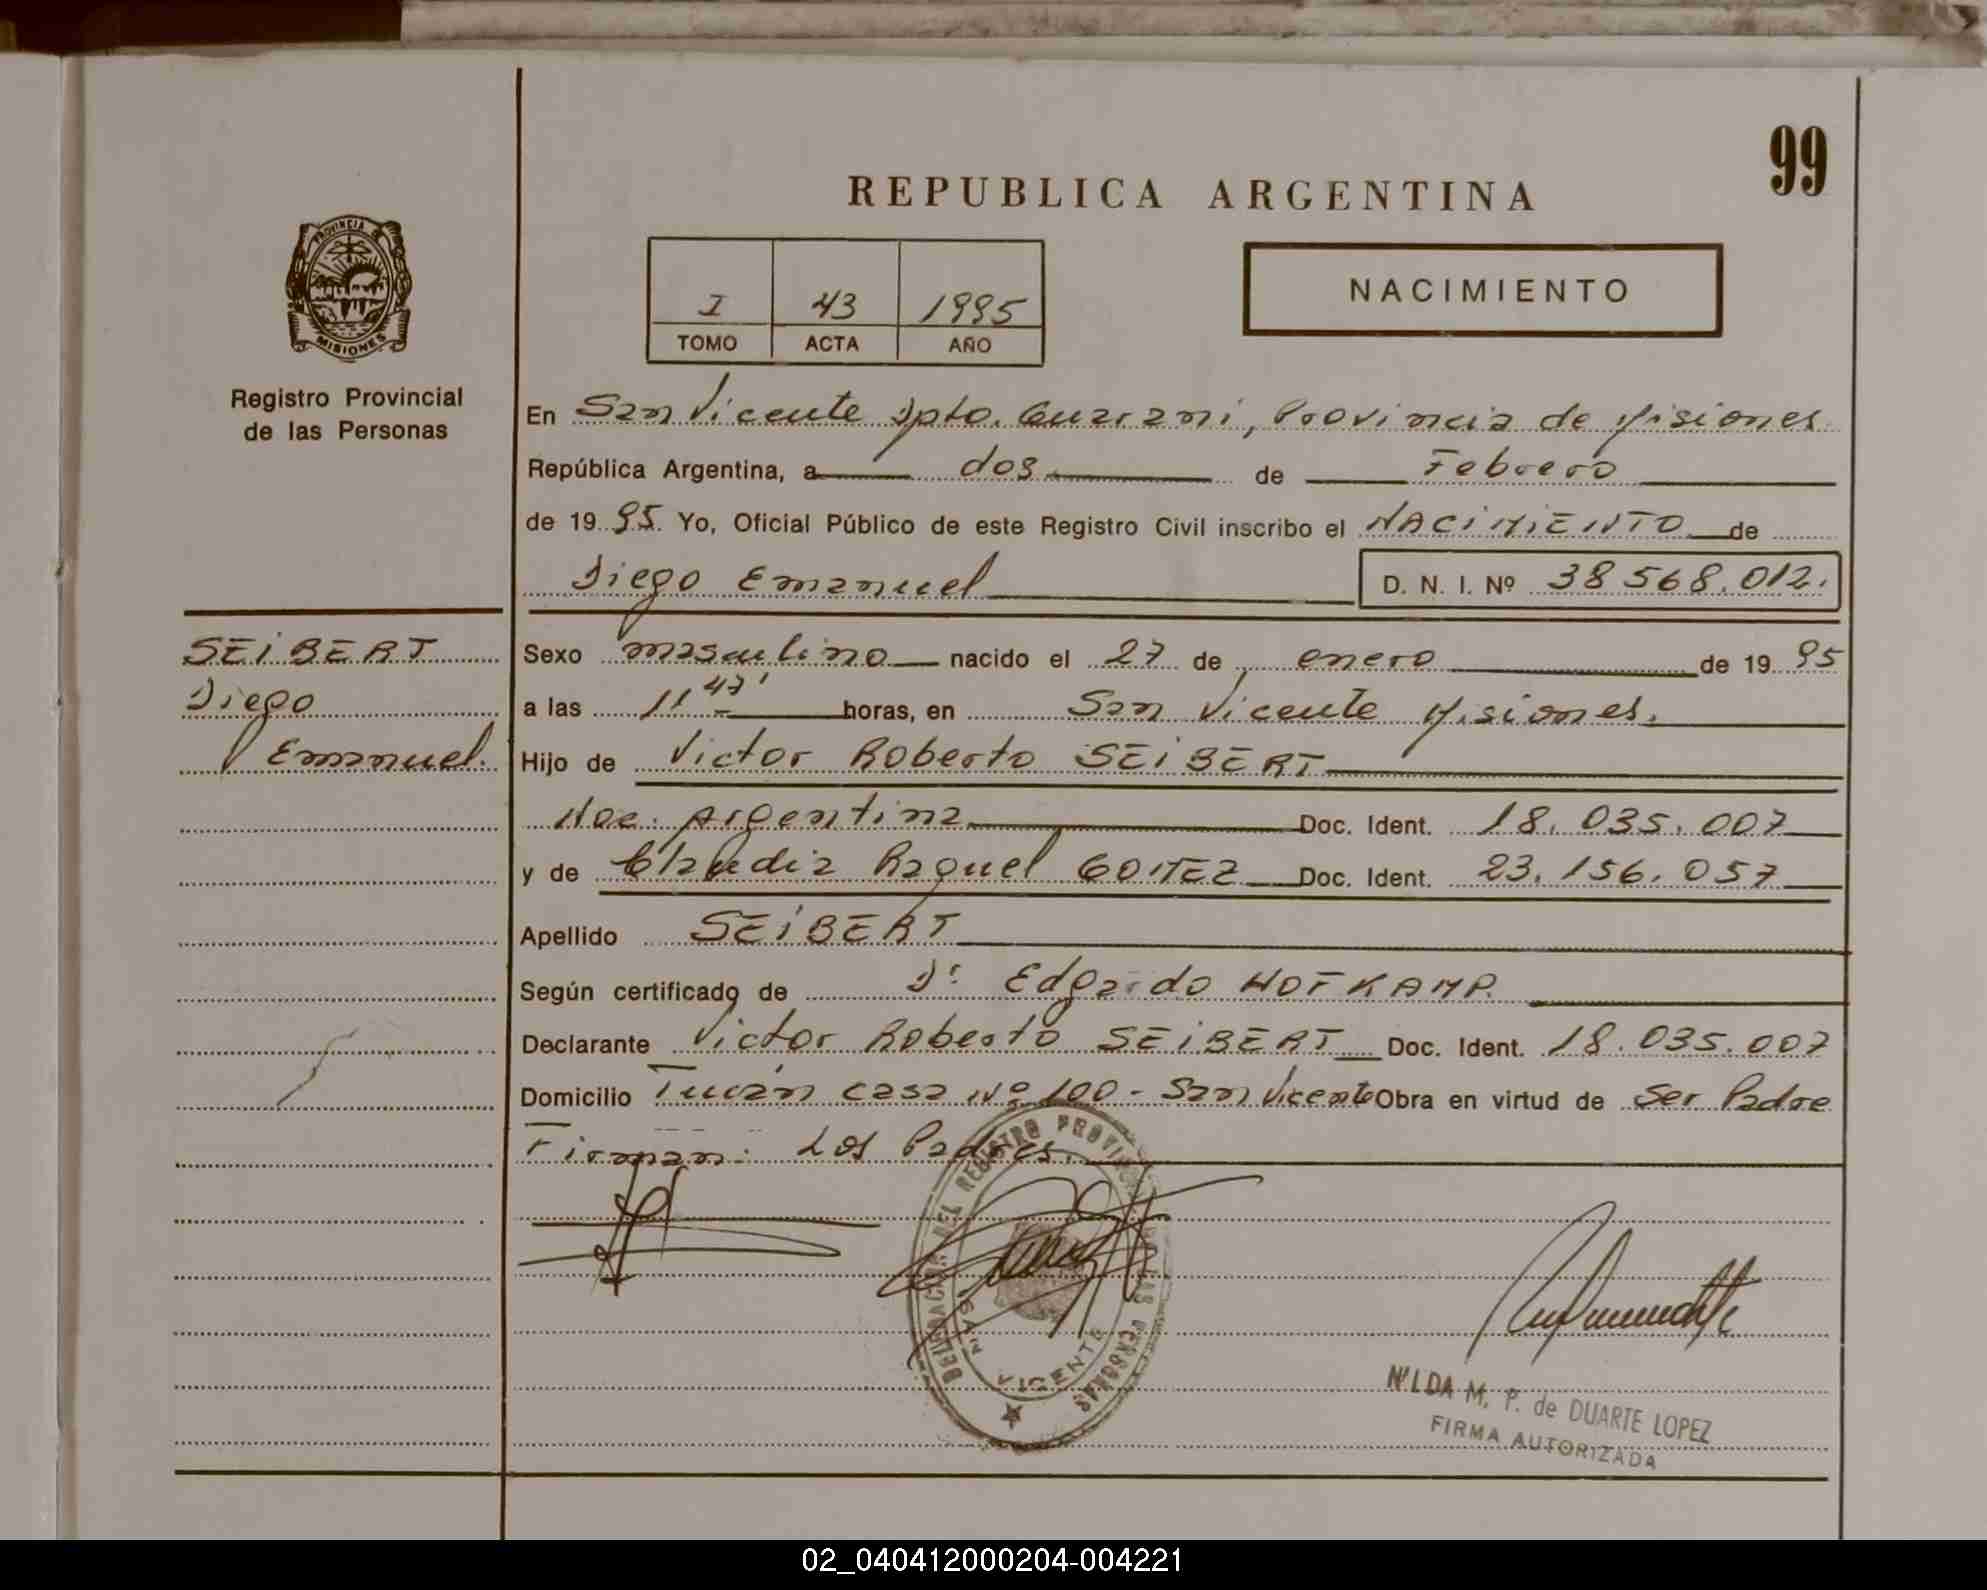 99
REPUBLICA ARGENTINA
PROVINCIA DE
MISIONES
Registro Provincial
de las Personas
I 43 1995
TOMO ACTA AÑO
NACIMIENTO
En San Vicente Dpto. Guarani, Provincia de Misiones
República Argentina, a dos de Febrero
de 1995. Yo, Oficial Público de este Registro Civil inscribo el NACIMIENTO de
Diego Emanuel D. N. I. Nº 38 568.012.
SEIBERT
Diego
Emanuel.
Sexo masculino nacido el 27 de enero de 1995
a las 11 47' horas, en San Vicente Misiones.
Hijo de Victor Roberto SEIBERT
Nac. Argentina Doc. Ident. 18.035.007
y de Claudia Raquel Doc. Ident. 23.156.057
Apellido SEIBERT
Según certificado de Dr Edgardo HOFKAMP.
Declarante Victor Roberto SEIBERT Doc. Ident. 18.035.007
Domicilio Tucán casa Nº 100 - San Vicente Obra en virtud de Ser Padre
Firman: Los Padres.
DELEGACION DEL REGISTRO PROVINCIAL DE LAS PERSONAS
SAN VICENTE
NILDA M. P. de DUARTE LOPEZ
FIRMA AUTORIZADA
02_040412000204-004221